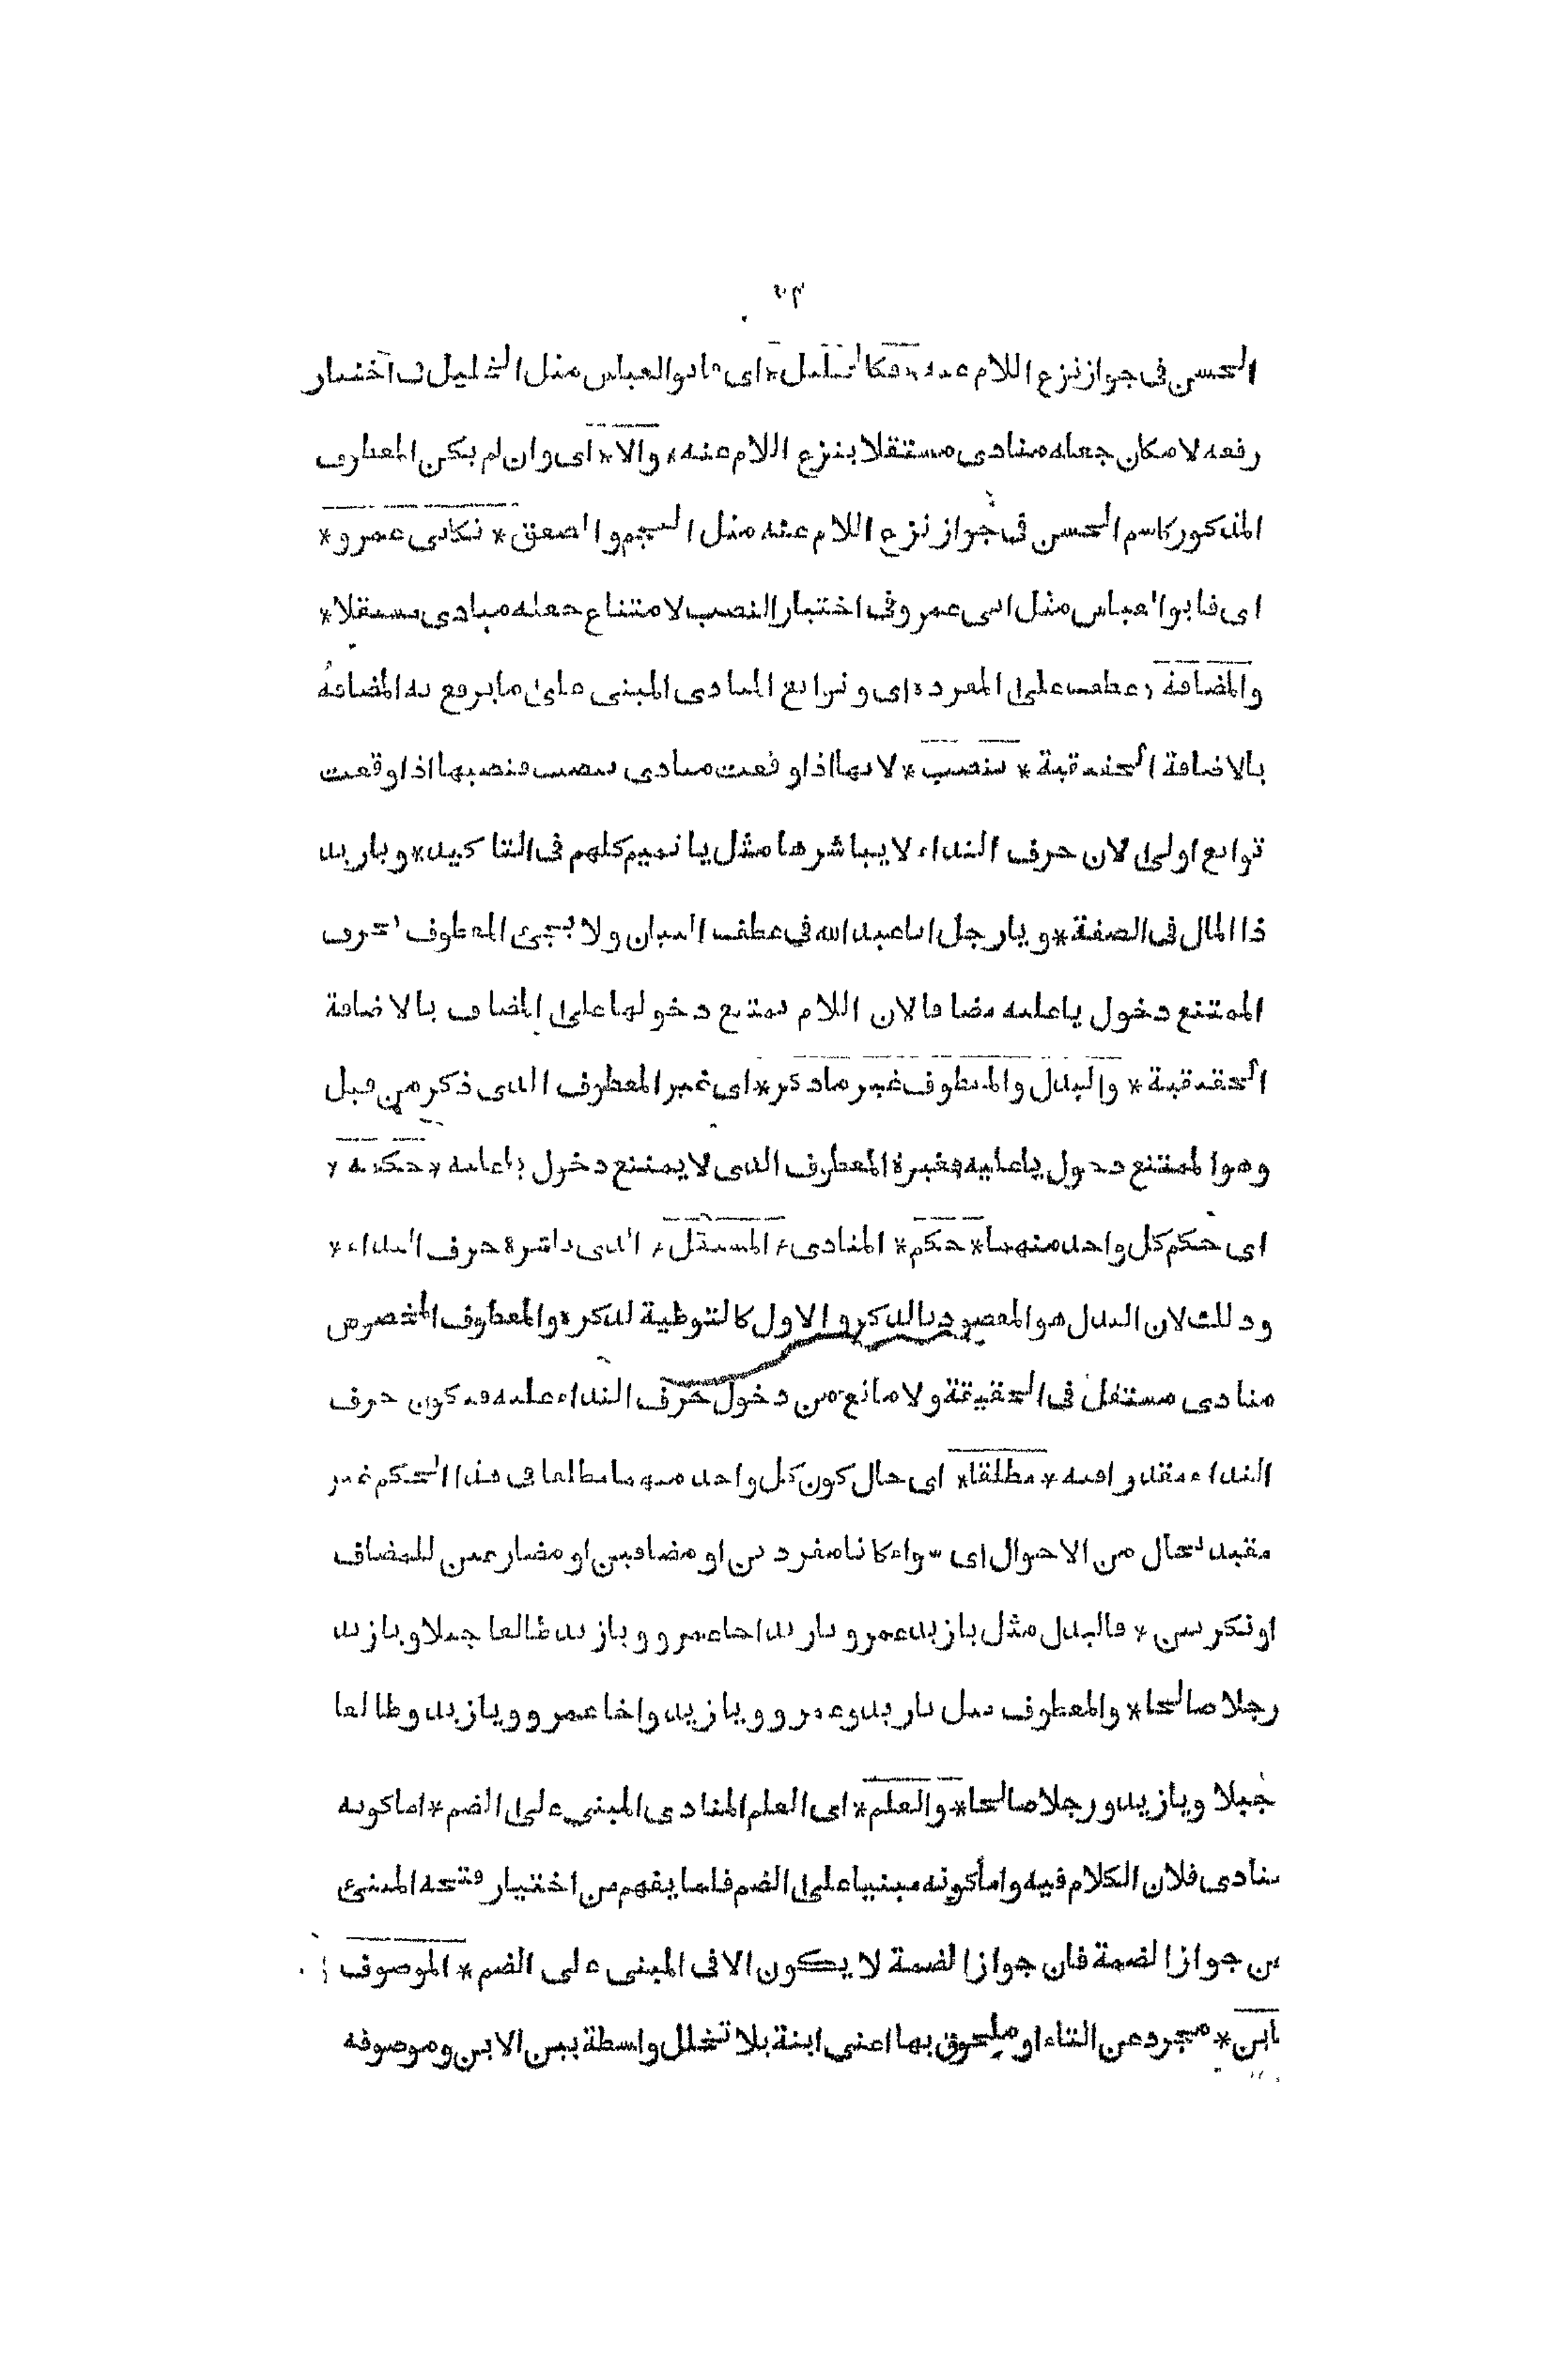 الحسن فى جواز نزع اللام عنه * فكالخليل * اى فابو العباس مثل الخليل فى اختيار
رفعه لامكان جعله منادى مستقلا بنزع اللام عنه * والا * اى وان لم يكن المعطوف
المذكور كاسم الحسن فى جواز نزع اللام عنه مثل النجم والصعق * فكابى عمرو *
اى فابو العباس مثل ابى عمرو فى اختيار النصب لامتناع جعله منادى مستقلا *
والمضافة * عطف على المفردة اى وتوابع المنادى المبنى على ما يرفع به المضافة
بالاضافة الحقيقية * تنصب * لانها اذا وقعت منادى تنصب فنصبها اذا وقعت
توابع اولى لان حرف النداء لا يباشرها مثل يا تميم كلهم فى التاكيد * ويا زيد
ذا المال فى الصفة * ويا رجل ابا عبد الله فى عطف البيان ولا يجئ المعطوف بحرف
الممتنع دخول يا عليه مضافا لان اللام يمتنع دخولها على المضاف بالاضافة
الحقيقية * والبدل والمعطوف غير ما ذكر * اى غير المعطوف الذى ذكر من قبل
وهو الممتنع دخول يا عليه فغيره المعطوف الذى لا يمتنع دخول يا عليه * حكمه *
اى حكم كل واحد منهما * حكم * المنادى * المستقل * الذى باشره حرف النداء *
وذلك لان البدل هو المقصود بالذكر والاول كالتوطية لذكره والمعطوف المخصوص
منادى مستقل فى الحقيقة ولا مانع من دخول حرف النداء عليه فيكون حرف
النداء مقدرا فيه * مطلقا * اى حال كون كل واحد منهما مطلقا فى هذا الحكم غير
مقيد بحال من الاحوال اى سواء كانا مفردين او مضافين او مضارعين للمضاف
او نكرتين * فالبدل مثل يا زيد عمرو ويا زيد اخا عمرو ويا زيد طالعا جبلا ويا زيد
رجلا صالحا * والمعطوف مثل يا زيد وعمرو ويا زيد واخا عمرو ويا زيد وطالعا
جبلا ويا زيد ورجلا صالحا * والعلم * اى العلم المنادى المبنى على الضم * اما كونه
منادى فلان الكلام فيه واما كونه مبنيا على الضم فلما يفهم من اختيار فتحه المبنئ
من جواز الضمة فان جواز الضمة لا يكون الا فى المبنى على الضم * الموصوف
بابن * مجرد عن التاء او ملحوق بها اعنى ابنة بلا تخلل واسطة بين الابن وموصوفه